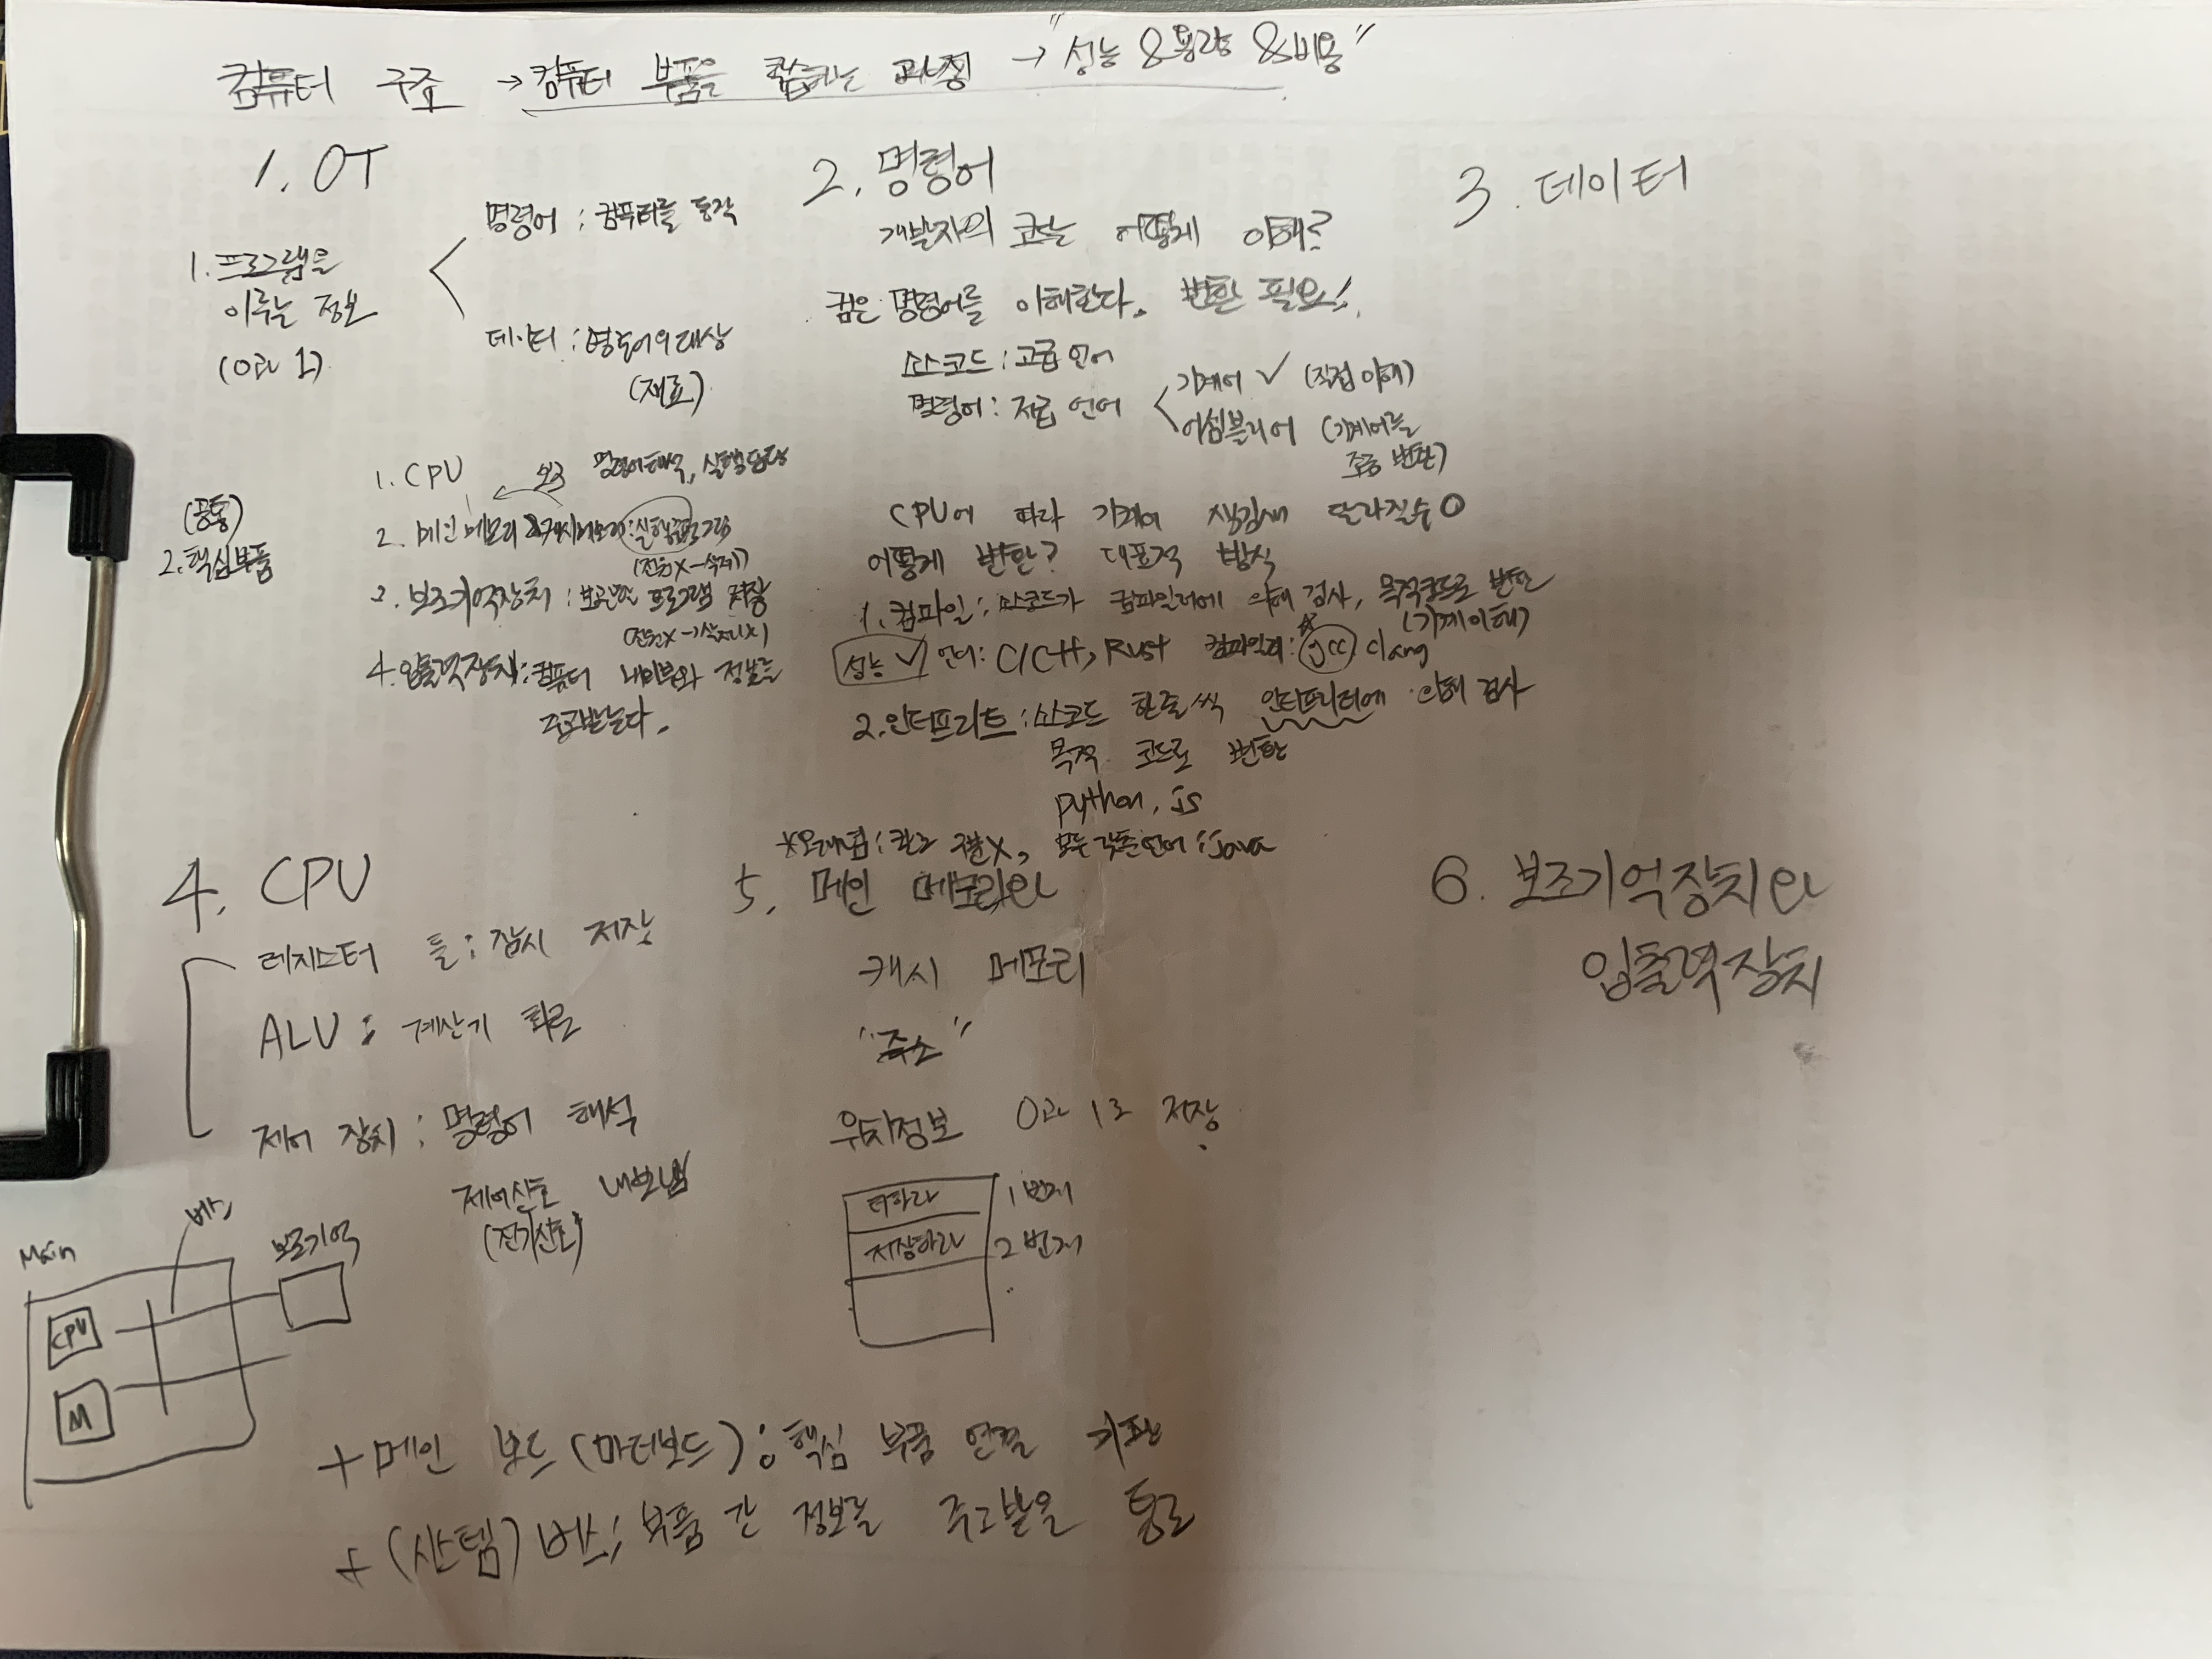 컴퓨터 구조 → 컴퓨터 부품을 학습하는 과정 → "성능 & 용량 & 비용"
1. OT
1. 프로그램을
이루는 정보
(0과 1)
명령어 : 컴퓨터를 동작
데이터 : 명령어의 대상
(재료)
(공통)
2. 핵심부품
1. CPU
명령어해석, 실행담당
2. 메인메모리 & 캐시메모리 : 실행 프로그램
(전원X → 삭제)
3. 보조기억장치 : 보관할 프로그램 저장
(전원X → 삭제X)
4. 입출력장치 : 컴퓨터 내외부와 정보를
주고받는다.
2. 명령어
개발자의 코드는 어떻게 이해?
컴은 명령어를 이해한다. 변환 필요!
소스코드 : 고급 언어
명령어 : 저급 언어
기계어 ✓ (직접 이해)
어셈블리어 (기계어를
변환)
CPU에 따라 기계어 생김새 달라질수 O
어떻게 변환? 대표적 방식
1. 컴파일 : 소스코드가 컴파일러에 의해 검사, 목적코드로 변환
(기계이해)
성능 ✓ 언어 : C/C++, Rust 컴파일러 : gcc clang
2. 인터프리트 : 소스코드 한줄씩 인터프리터에 의해 검사
목적 코드로 변환
python, js
모두 갖춘언어 : java
3. 데이터
4. CPU
레지스터 들 : 잠시 저장
ALU : 계산기 회로
제어 장치 : 명령어 해석
제어신호 내보냄
(전기신호)
5. 메인 메모리와
캐시 메모리
"주소"
위치정보 0과 1로 저장.
더하라 1번지
저장하라 2번지
6. 보조기억장치와
입출력장치
Main
버스
보조기억
CPU
M
+ 메인 보드 (마더보드) : 핵심 부품 연결 기판
+ (시스템) 버스 : 부품 간 정보를 주고받을 통로